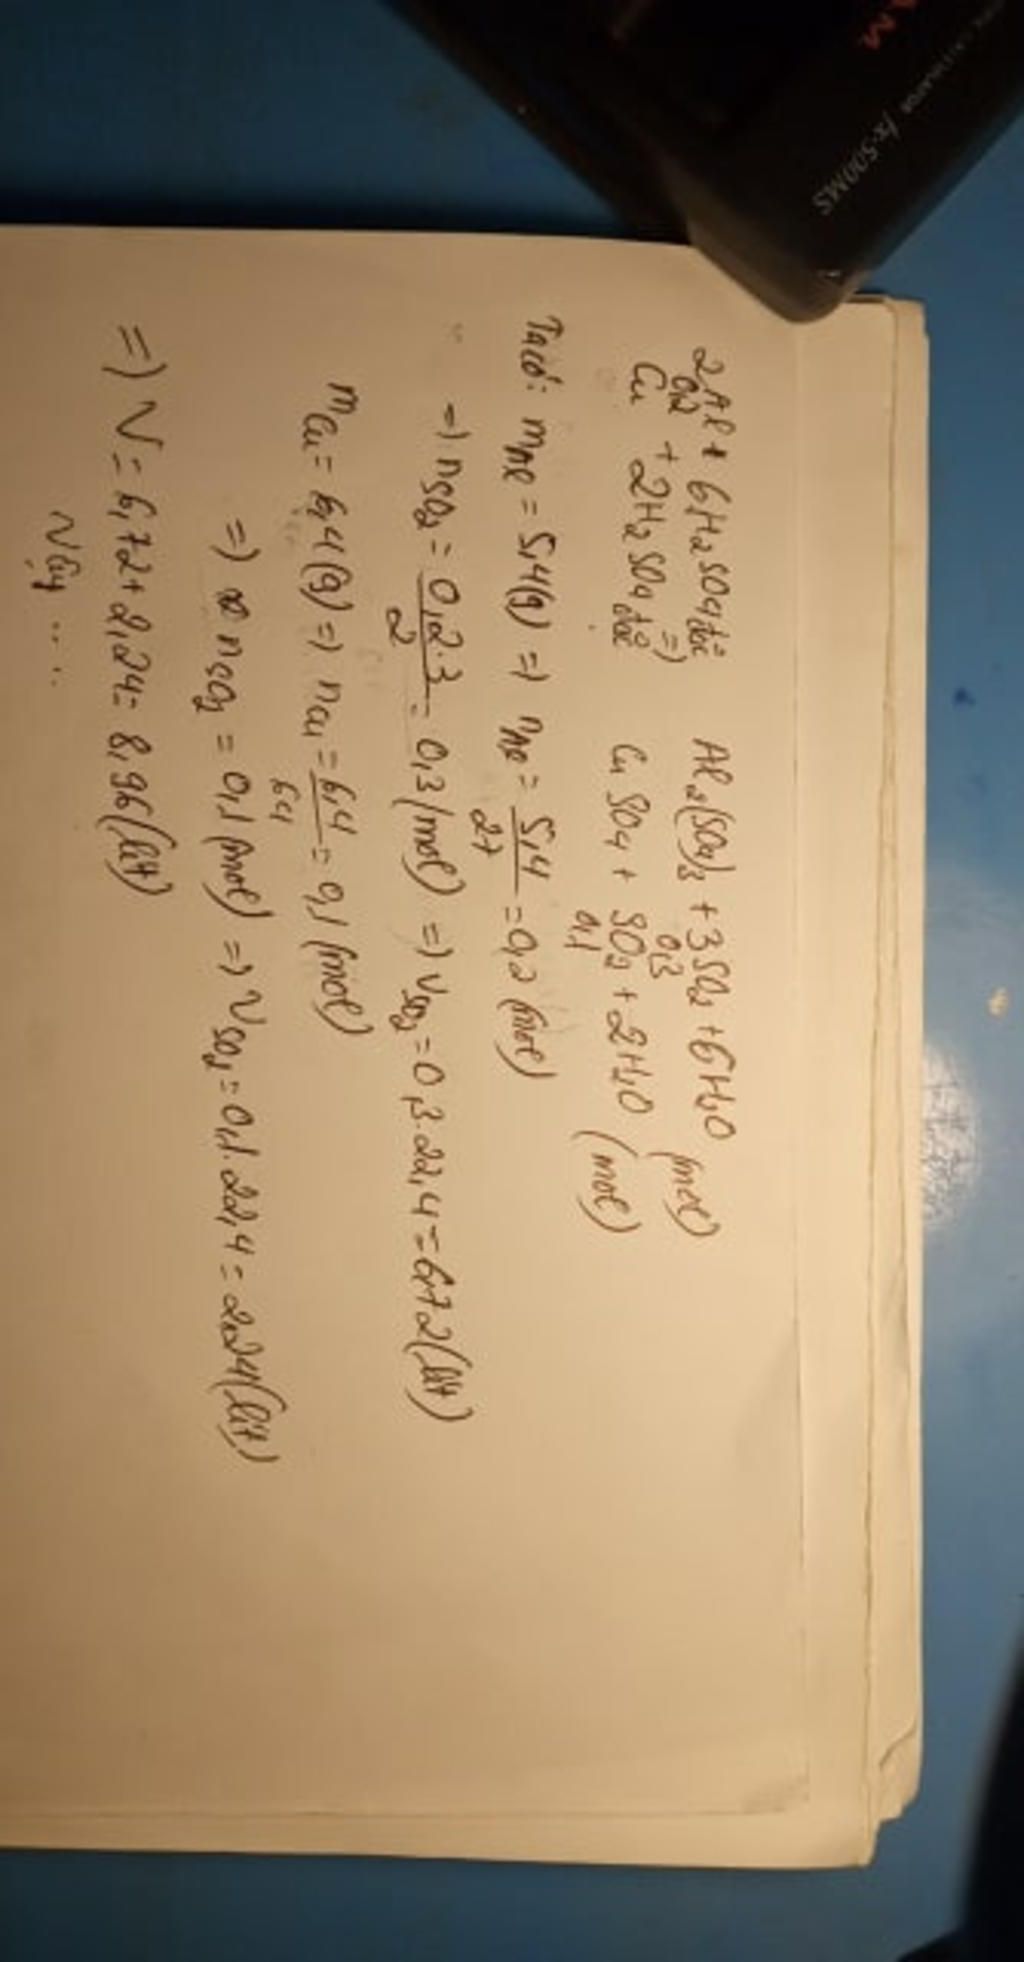 AM
fx-500MS
2Al + 6H₂SO₄ đặc t° => Al₂(SO₄)₃ + 3SO₂ + 6H₂O
0,2 0,3 (mol)
Cu + 2H₂SO₄ đặc t° CuSO₄ + SO₂ + 2H₂O
0,1 (mol)
Ta có: mAl = 5,4(g) => nAl = 5,4/27 = 0,2 (mol)
=> nSO₂ = 0,2.3/2 = 0,3 (mol) => VSO₂ = 0,3.22,4 = 6,72 (lít)
mCu = 6,4(g) => nCu = 6,4/64 = 0,1 (mol)
=> nSO₂ = 0,1 (mol) => VSO₂ = 0,1.22,4 = 2,24 (lít)
=> V = 6,72 + 2,24 = 8,96 (lít)
Vậy ...